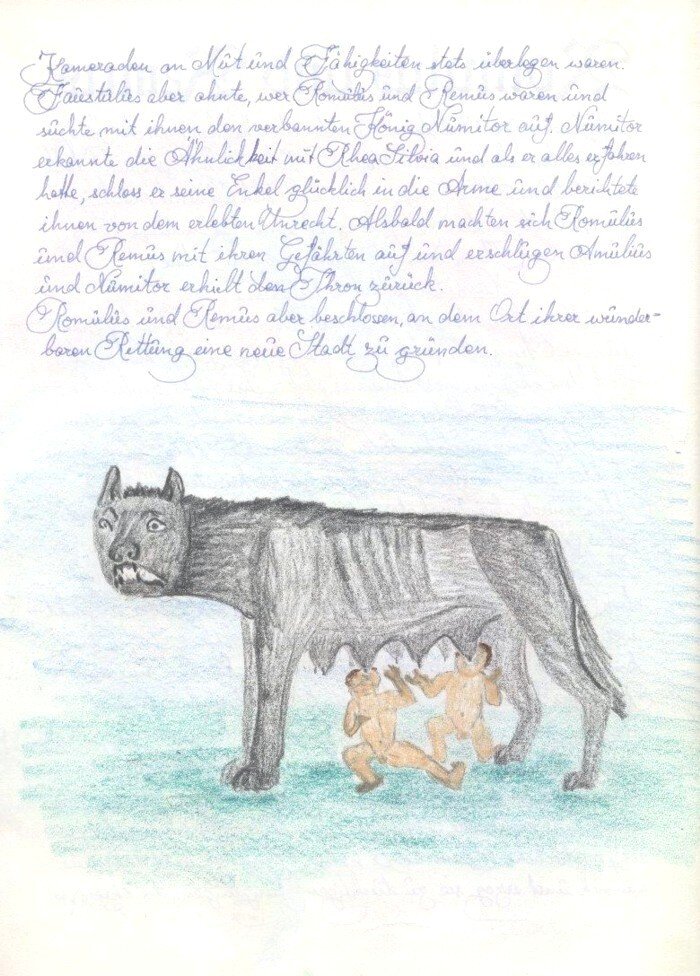 Kameraden an Mut und Fähigkeiten stets überlegen waren.
Faustulus aber ahnte, wer Romulus und Remus waren und
suchte mit ihnen den verbannten König Numitor auf. Numitor
erkannte die Ähnlichkeit mit Rhea Silvia und als er alles erfahren
hatte, schloss er seine Enkel glücklich in die Arme und berichtete
ihnen von dem erlebten Unrecht. Alsbald machten sich Romulus
und Remus mit ihren Gefährten auf und erschlugen Amulius
und Numitor erhielt den Thron zurück.
Romulus und Remus aber beschlossen, an dem Ort ihrer wunder-
baren Rettung eine neue Stadt zu gründen.